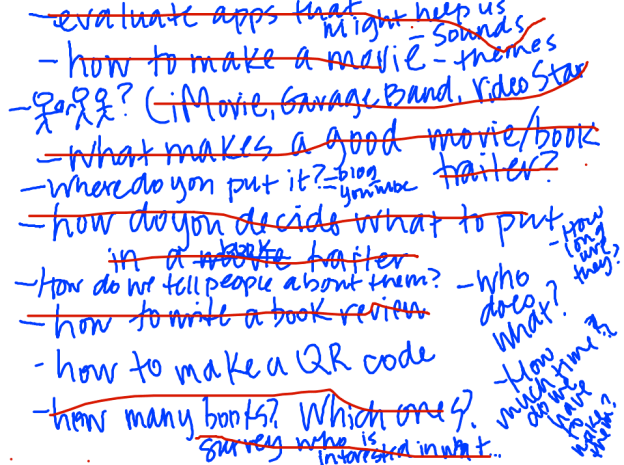 -evaluate apps that might help us
-how to make a movie - sounds
- themes
- or ? (iMovie, GarageBand, Video Star
-what makes a good movie/book
trailer?
-where do you put it? - blog
- youtube
-how do you decide what to put
in a book trailer
-How do we tell people about them?
-how to write a book review
-how to make a QR code
-how many books? Which ones?
survey who is interested in what...
-How long are they?
-who does what?
-How much time do we have to make them?